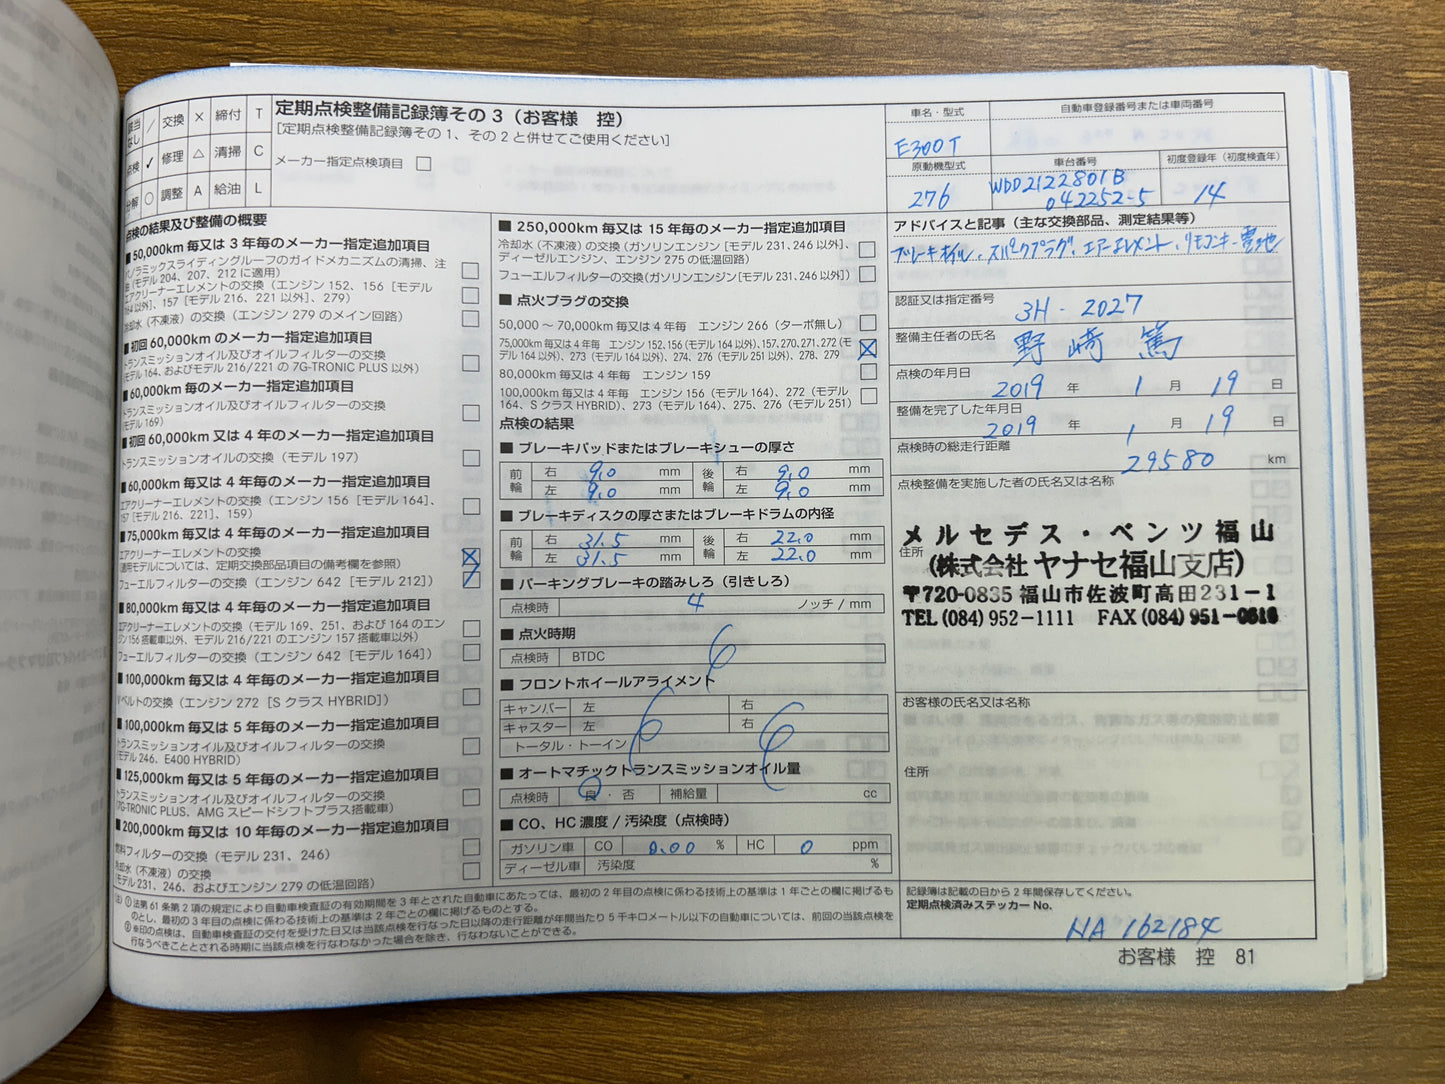 定期点検整備記録簿その３（お客様　控）
［定期点検整備記録簿その１、その２と併せてご使用ください］
メーカー指定点検項目 □
なし ／ 交換 × 締付 T
点検 ✓ 修理 △ 清掃 C
分解 ○ 調整 A 給油 L
車名・型式
E300T
自動車登録番号または車両番号
原動機型式
276
車台番号
WDD2122801B
042252-5
初度登録年（初度検査年）
14
点検の結果及び整備の概要
■ 50,000km 毎又は 3 年毎のメーカー指定追加項目
パノラミックスライディングルーフのガイドメカニズムの清掃、注
油（モデル 204、207、212 に適用）
エアクリーナーエレメントの交換（エンジン 152、156［モデル
164 以外］、157［モデル 216、221 以外］、279）
冷却水（不凍液）の交換（エンジン 279 のメイン回路）
■ 初回 60,000km のメーカー指定追加項目
トランスミッションオイル及びオイルフィルターの交換
（モデル 164、およびモデル 216/221 の 7G-TRONIC PLUS 以外）
■ 60,000km 毎のメーカー指定追加項目
トランスミッションオイル及びオイルフィルターの交換
（モデル 169）
■ 初回 60,000km 又は 4 年毎のメーカー指定追加項目
トランスミッションオイルの交換（モデル 197）
■ 60,000km 毎又は 4 年毎のメーカー指定追加項目
エアクリーナーエレメントの交換（エンジン 156［モデル 164］、
157［モデル 216、221］、159）
■ 75,000km 毎又は 4 年毎のメーカー指定追加項目
エアクリーナーエレメントの交換
（適用モデルについては、定期交換部品項目の備考欄を参照）
フューエルフィルターの交換（エンジン 642［モデル 212］）
■ 80,000km 毎又は 4 年毎のメーカー指定追加項目
エアクリーナーエレメントの交換（モデル 169、251、および 164 のエン
ジン 156 搭載車以外、モデル 216/221 のエンジン 157 搭載車以外）
フューエルフィルターの交換（エンジン 642［モデル 164］）
■ 100,000km 毎又は 4 年毎のメーカー指定追加項目
Vベルトの交換（エンジン 272［S クラス HYBRID］）
■ 100,000km 毎又は 5 年毎のメーカー指定追加項目
トランスミッションオイル及びオイルフィルターの交換
（モデル 246、E400 HYBRID）
■ 125,000km 毎又は 5 年毎のメーカー指定追加項目
トランスミッションオイル及びオイルフィルターの交換
（7G-TRONIC PLUS、AMG スピードシフトプラス搭載車）
■ 200,000km 毎又は 10 年毎のメーカー指定追加項目
燃料フィルターの交換（モデル 231、246）
冷却水（不凍液）の交換
（モデル 231、246、およびエンジン 279 の低温回路）
■ 250,000km 毎又は 15 年毎のメーカー指定追加項目
冷却水（不凍液）の交換（ガソリンエンジン［モデル 231、246 以外］、
ディーゼルエンジン、エンジン 275 の低温回路）
フューエルフィルターの交換（ガソリンエンジン［モデル 231、246 以外］）
■ 点火プラグの交換
50,000 ～ 70,000km 毎又は 4 年毎　エンジン 266（ターボ無し）
75,000km 毎又は 4 年毎　エンジン 152、156（モデル 164 以外）、157、270、271、272（モ
デル 164 以外）、273（モデル 164 以外）、274、276（モデル 251 以外）、278、279
80,000km 毎又は 4 年毎　エンジン 159
100,000km 毎又は 4 年毎　エンジン 156（モデル 164）、272（モデル
164、S クラス HYBRID）、273（モデル 164）、275、276（モデル 251）
点検の結果
■ ブレーキパッドまたはブレーキシューの厚さ
前輪 右 9.0 mm 後輪 右 9.0 mm
左 9.0 mm 左 9.0 mm
■ ブレーキディスクの厚さまたはブレーキドラムの内径
前輪 右 31.5 mm 後輪 右 22.0 mm
左 31.5 mm 左 22.0 mm
■ パーキングブレーキの踏みしろ（引きしろ）
点検時 4 ノッチ / mm
■ 点火時期
点検時 BTDC
■ フロントホイールアライメント
キャンバー 左 右
キャスター 左 右
トータル・トーイン
■ オートマチックトランスミッションオイル量
点検時 良 ・ 否 補給量 cc
■ CO、HC 濃度 / 汚染度（点検時）
ガソリン車 CO 0.00 % HC 0 ppm
ディーゼル車 汚染度 %
アドバイスと記事（主な交換部品、測定結果等）
ブレーキオイル、スパークプラグ、エアーエレメント、リモコンキー電池
認証又は指定番号
3H - 2027
整備主任者の氏名
野﨑 篤
点検の年月日
2019 年 1 月 19 日
整備を完了した年月日
2019 年 1 月 19 日
点検時の総走行距離
29580 km
点検整備を実施した者の氏名又は名称
メルセデス・ベンツ福山
住所
（株式会社 ヤナセ福山支店）
〒720-0835 福山市佐波町高田231－1
TEL (084) 952－1111　FAX (084) 951－0616
お客様の氏名又は名称
住所
（注）① 法第 61 条第 2 項の規定により自動車検査証の有効期間を 3 年とされた自動車にあたっては、最初の 2 年目の点検に係わる技術上の基準は 1 年ごとの欄に掲げるも
のとし、最初の 3 年目の点検に係わる技術上の基準は 2 年ごとの欄に掲げるものとする。
② ※印の点検は、自動車検査証の交付を受けた日又は当該点検を行なった日以降の走行距離が年間当たり 5 千キロメートル以下の自動車については、前回の当該点検を
行なうべきこととされる時期に当該点検を行なわなかった場合を除き、行なわないことができる。
記録簿は記載の日から 2 年間保存してください。
定期点検済みステッカー No.
HA 162184
お客様　控　81